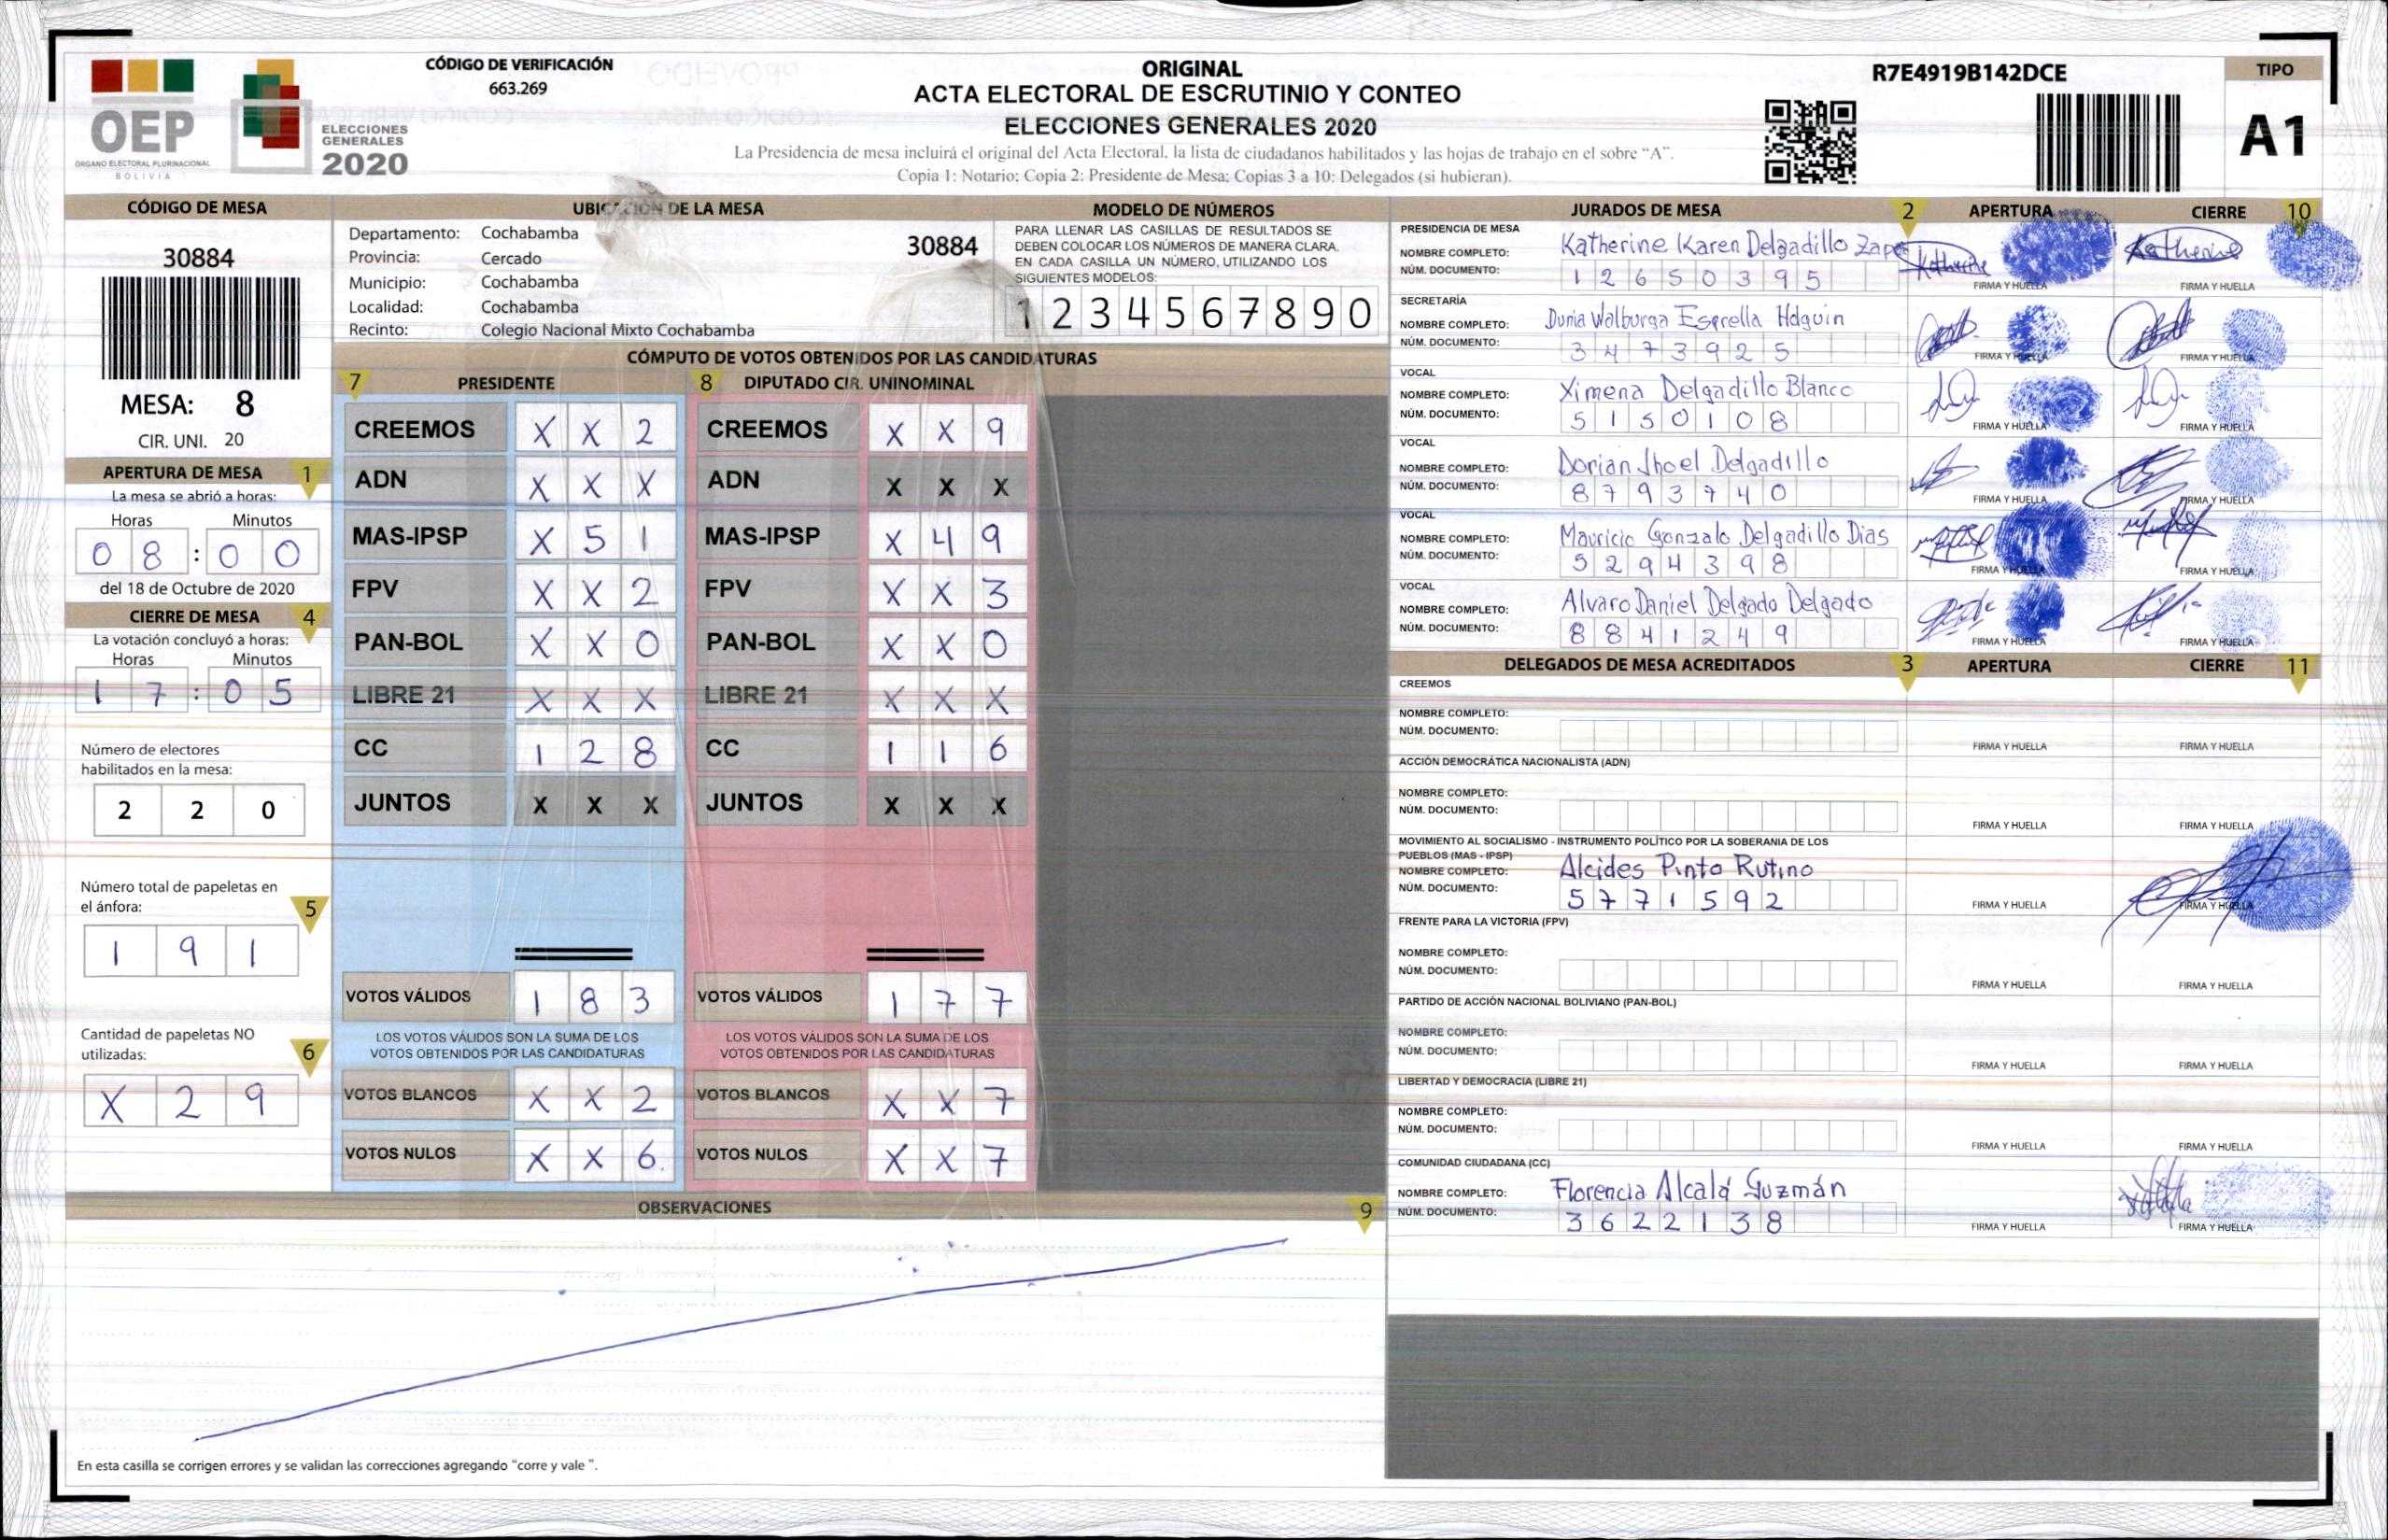 CÓDIGO DE VERIFICACIÓN
663.269
OEP
ÓRGANO ELECTORAL PLURINACIONAL
BOLIVIA
ELECCIONES
GENERALES
2020
ORIGINAL
ACTA ELECTORAL DE ESCRUTINIO Y CONTEO
ELECCIONES GENERALES 2020
La Presidencia de mesa incluirá el original del Acta Electoral, la lista de ciudadanos habilitados y las hojas de trabajo en el sobre “A”.
Copia 1: Notario; Copia 2: Presidente de Mesa; Copias 3 a 10: Delegados (si hubieran).
R7E4919B142DCE
TIPO
A1
CÓDIGO DE MESA
30884
MESA: 8
CIR. UNI. 20
APERTURA DE MESA 1
La mesa se abrió a horas:
Horas Minutos
0 8 : 0 0
del 18 de Octubre de 2020
CIERRE DE MESA 4
La votación concluyó a horas:
Horas Minutos
1 7 : 0 5
Número de electores
habilitados en la mesa:
2 2 0
Número total de papeletas en
el ánfora: 5
1 9 1
Cantidad de papeletas NO
utilizadas: 6
X 2 9
UBICACIÓN DE LA MESA
Departamento: Cochabamba
Provincia: Cercado
Municipio: Cochabamba
Localidad: Cochabamba
Recinto: Colegio Nacional Mixto Cochabamba
30884
MODELO DE NÚMEROS
PARA LLENAR LAS CASILLAS DE RESULTADOS SE
DEBEN COLOCAR LOS NÚMEROS DE MANERA CLARA.
EN CADA CASILLA UN NÚMERO, UTILIZANDO LOS
SIGUIENTES MODELOS:
1 2 3 4 5 6 7 8 9 0
CÓMPUTO DE VOTOS OBTENIDOS POR LAS CANDIDATURAS
7 PRESIDENTE 8 DIPUTADO CIR. UNINOMINAL
CREEMOS X X 2 CREEMOS X X 9
ADN X X X ADN X X X
MAS-IPSP X 5 1 MAS-IPSP X 4 9
FPV X X 2 FPV X X 3
PAN-BOL X X 0 PAN-BOL X X 0
LIBRE 21 X X X LIBRE 21 X X X
CC 1 2 8 CC 1 1 6
JUNTOS X X X JUNTOS X X X
VOTOS VÁLIDOS 1 8 3 VOTOS VÁLIDOS 1 7 7
LOS VOTOS VÁLIDOS SON LA SUMA DE LOS LOS VOTOS VÁLIDOS SON LA SUMA DE LOS
VOTOS OBTENIDOS POR LAS CANDIDATURAS VOTOS OBTENIDOS POR LAS CANDIDATURAS
VOTOS BLANCOS X X 2 VOTOS BLANCOS X X 7
VOTOS NULOS X X 6 VOTOS NULOS X X 7
OBSERVACIONES 9
En esta casilla se corrigen errores y se validan las correcciones agregando “corre y vale ”.
JURADOS DE MESA 2 APERTURA CIERRE 10
PRESIDENCIA DE MESA
NOMBRE COMPLETO: Katherine Karen Delgadillo Zape Katherine Katherine
NÚM. DOCUMENTO: 1 2 6 5 0 3 9 5
FIRMA Y HUELLA FIRMA Y HUELLA
SECRETARÍA
NOMBRE COMPLETO: Dunia Walburga Esprella
NÚM. DOCUMENTO: 3 4 7 3 9 2 5
FIRMA Y HUELLA FIRMA Y HUELLA
VOCAL
NOMBRE COMPLETO: Ximena Delgadillo Blanco
NÚM. DOCUMENTO: 5 1 5 0 1 0 8
FIRMA Y HUELLA FIRMA Y HUELLA
VOCAL
NOMBRE COMPLETO: Dorian Jhoel Delgadillo
NÚM. DOCUMENTO: 8 7 9 3 7 4 0
FIRMA Y HUELLA FIRMA Y HUELLA
VOCAL
NOMBRE COMPLETO: Mauricio Gonzalo Delgadillo Dias
NÚM. DOCUMENTO: 5 2 9 4 3 9 8
FIRMA Y HUELLA FIRMA Y HUELLA
VOCAL
NOMBRE COMPLETO: Alvaro Daniel Delgado Delgado
NÚM. DOCUMENTO: 8 8 4 1 2 4 9
FIRMA Y HUELLA FIRMA Y HUELLA
DELEGADOS DE MESA ACREDITADOS 3 APERTURA CIERRE 11
CREEMOS
NOMBRE COMPLETO:
NÚM. DOCUMENTO:
FIRMA Y HUELLA FIRMA Y HUELLA
ACCIÓN DEMOCRÁTICA NACIONALISTA (ADN)
NOMBRE COMPLETO:
NÚM. DOCUMENTO:
FIRMA Y HUELLA FIRMA Y HUELLA
MOVIMIENTO AL SOCIALISMO - INSTRUMENTO POLÍTICO POR LA SOBERANIA DE LOS
PUEBLOS (MAS - IPSP)
NOMBRE COMPLETO: Alcides Pinto Rutino
NÚM. DOCUMENTO: 5 7 7 1 5 9 2
FIRMA Y HUELLA FIRMA Y HUELLA
FRENTE PARA LA VICTORIA (FPV)
NOMBRE COMPLETO:
NÚM. DOCUMENTO:
FIRMA Y HUELLA FIRMA Y HUELLA
PARTIDO DE ACCIÓN NACIONAL BOLIVIANO (PAN-BOL)
NOMBRE COMPLETO:
NÚM. DOCUMENTO:
FIRMA Y HUELLA FIRMA Y HUELLA
LIBERTAD Y DEMOCRACIA (LIBRE 21)
NOMBRE COMPLETO:
NÚM. DOCUMENTO:
FIRMA Y HUELLA FIRMA Y HUELLA
COMUNIDAD CIUDADANA (CC)
NOMBRE COMPLETO: Florencia Alcalá Guzmán
NÚM. DOCUMENTO: 3 6 2 2 1 3 8
FIRMA Y HUELLA FIRMA Y HUELLA